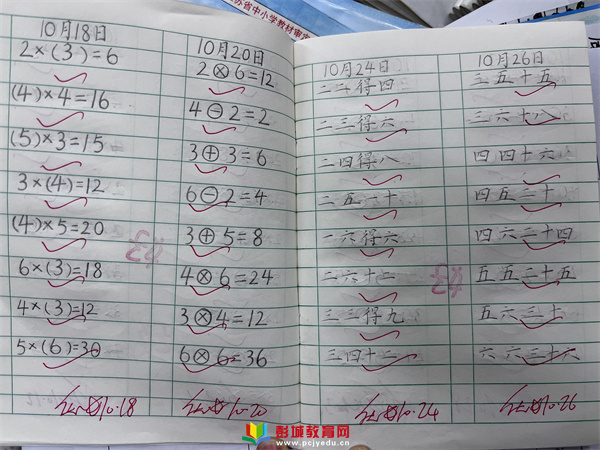 苏省中小学教材审定
10月18日
2×(3)=6
(4)×4=16
(5)×3=15
3×(4)=12
(4)×5=20
6×(3)=18
4×(3)=12
5×(6)=30
10.18
10月20日
2⊗6=12
4⊖2=2
3⊕3=6
6⊖2=4
3⊕5=8
4⊗6=24
3⊗4=12
6⊗6=36
10.20
10月24日
二二得四
二三得六
二四得八
二五一十
六得六
二六十二
三三得九
三四十二
10.24
10月26日
三五十五
三六十八
四四十六
四五二十
四六二十四
五五二十五
五六三十
六六三十六
10.26
彭城教育网
www.pcjyedu.cn